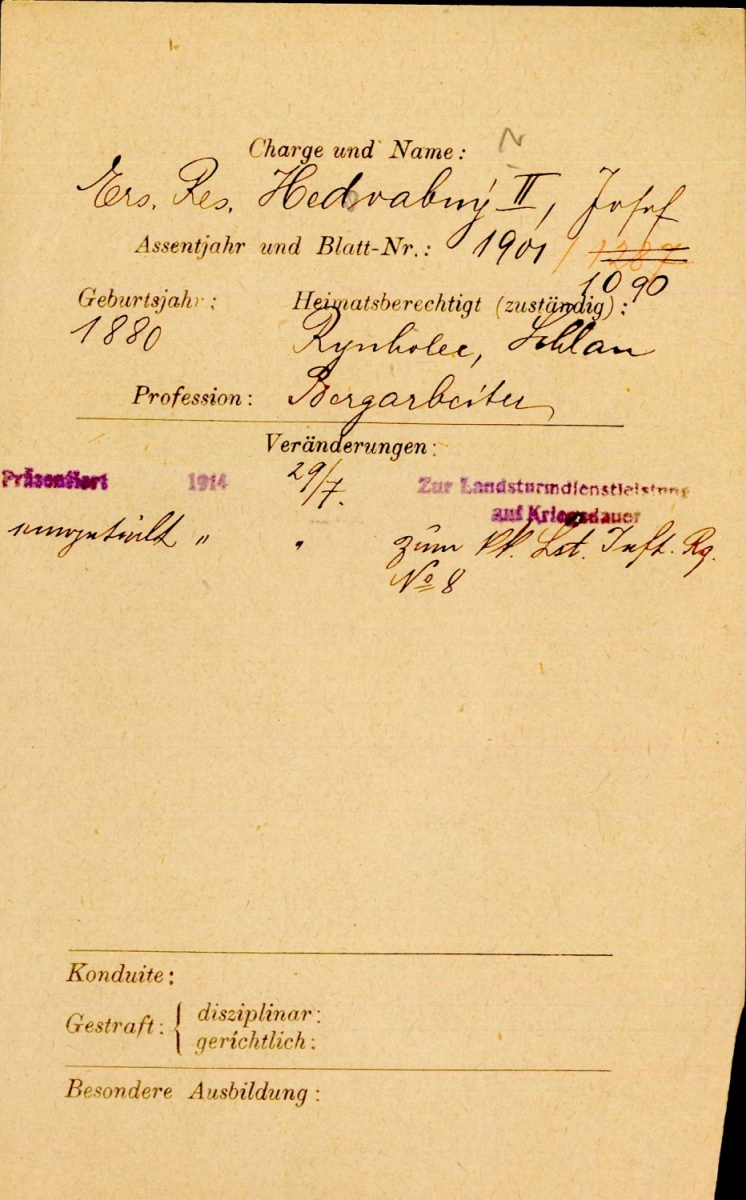 N
Charge und Name:
Ers. Res. Hedvabný II, Josef
Assentjahr und Blatt-Nr.: 1901 / 1287
1090
Geburtsjahr: Heimatsberechtigt (zuständig):
1880 Rynholec, Schlan
Profession: Bergarbeiter
Veränderungen:
Präsentiert 1914 29/7. Zur Landsturmdienstleistung
auf Kriegsdauer
eingeteilt " " zum kk. Lst. Inft. Rg.
No 8
Konduite:
Gestraft: { disziplinar:
gerichtlich:
Besondere Ausbildung: